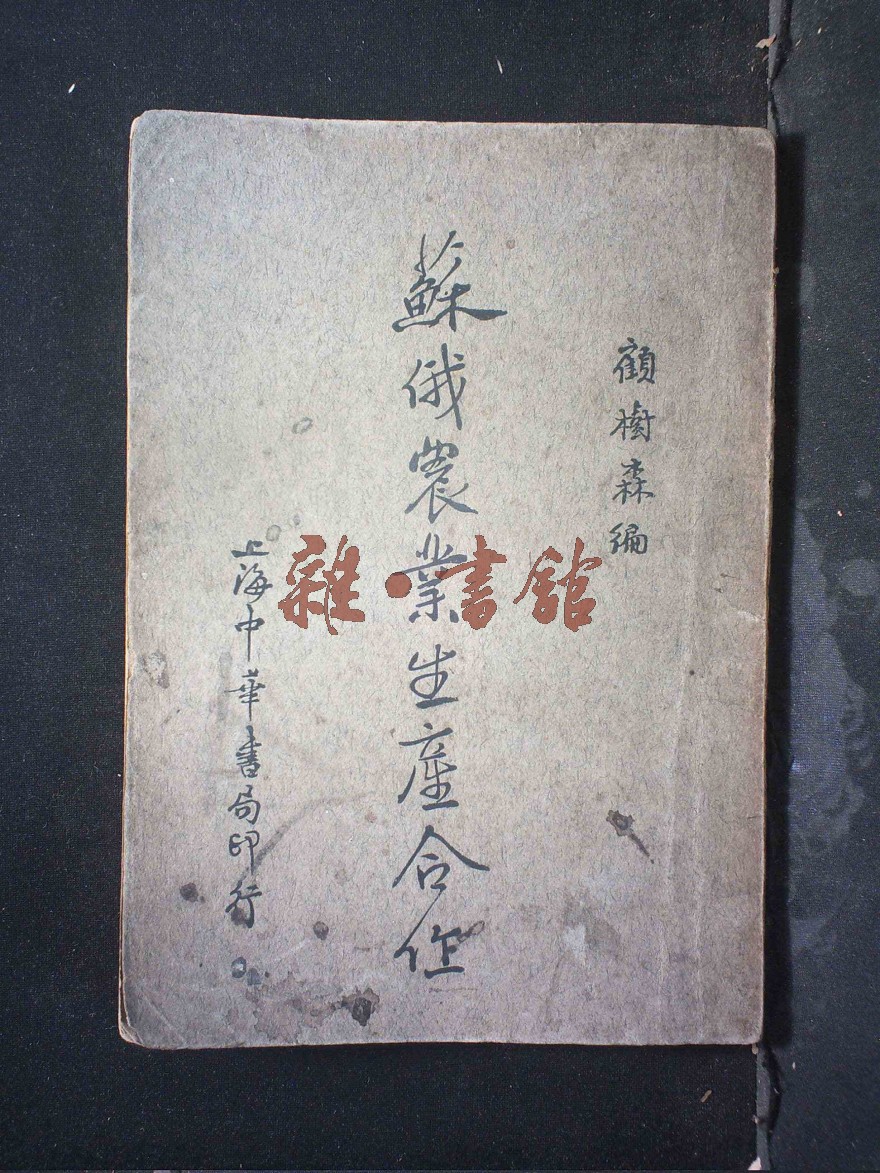 顧樹森編
蘇俄農業生產合作
上海中華書局印行
雜·書館